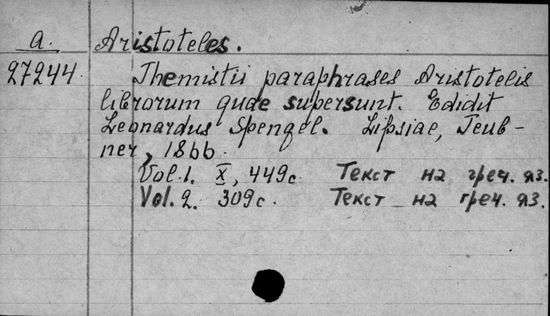 a. Aristoteles.
27244 Themistii paraphrases Aristotelis
librorum quae supersunt. Edidit
Leonardus Spengel. Lipsiae, Teub-
ner, 1866.
Vol. 1. X, 449c. Текст на греч. яз.
Vol. 2. 309c. Текст на греч. яз.